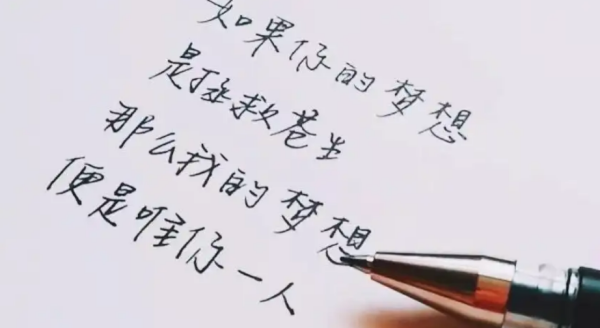 如果你的梦想
是拯救苍生
那么我的梦想
便是唯你一人